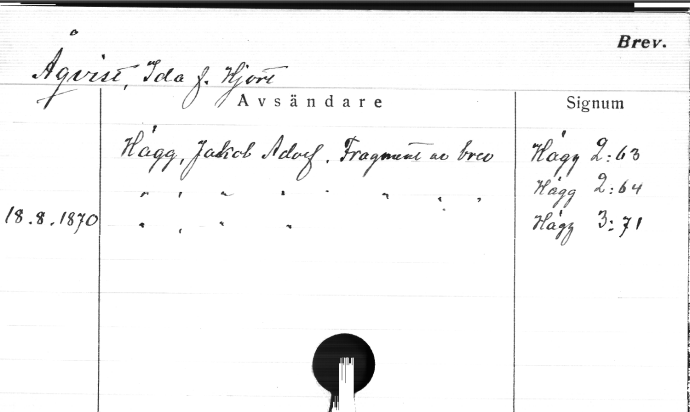 Brev.
Åqvist, Ida f. Hjort
Avsändare Signum
Hägg, Jakob Adolf. Fragment av brev Hägg 2:63
" , " " . " " , Hägg 2:64
18.8.1870 " , " " Hägg 3:71